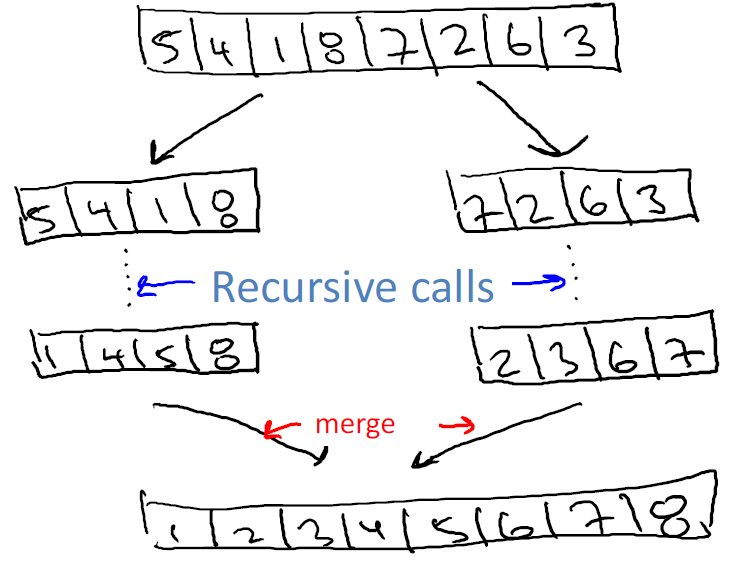 5 4 1 8 7 2 6 3
5 4 1 8
7 2 6 3
Recursive calls
1 4 5 8
2 3 6 7
merge
1 2 3 4 5 6 7 8